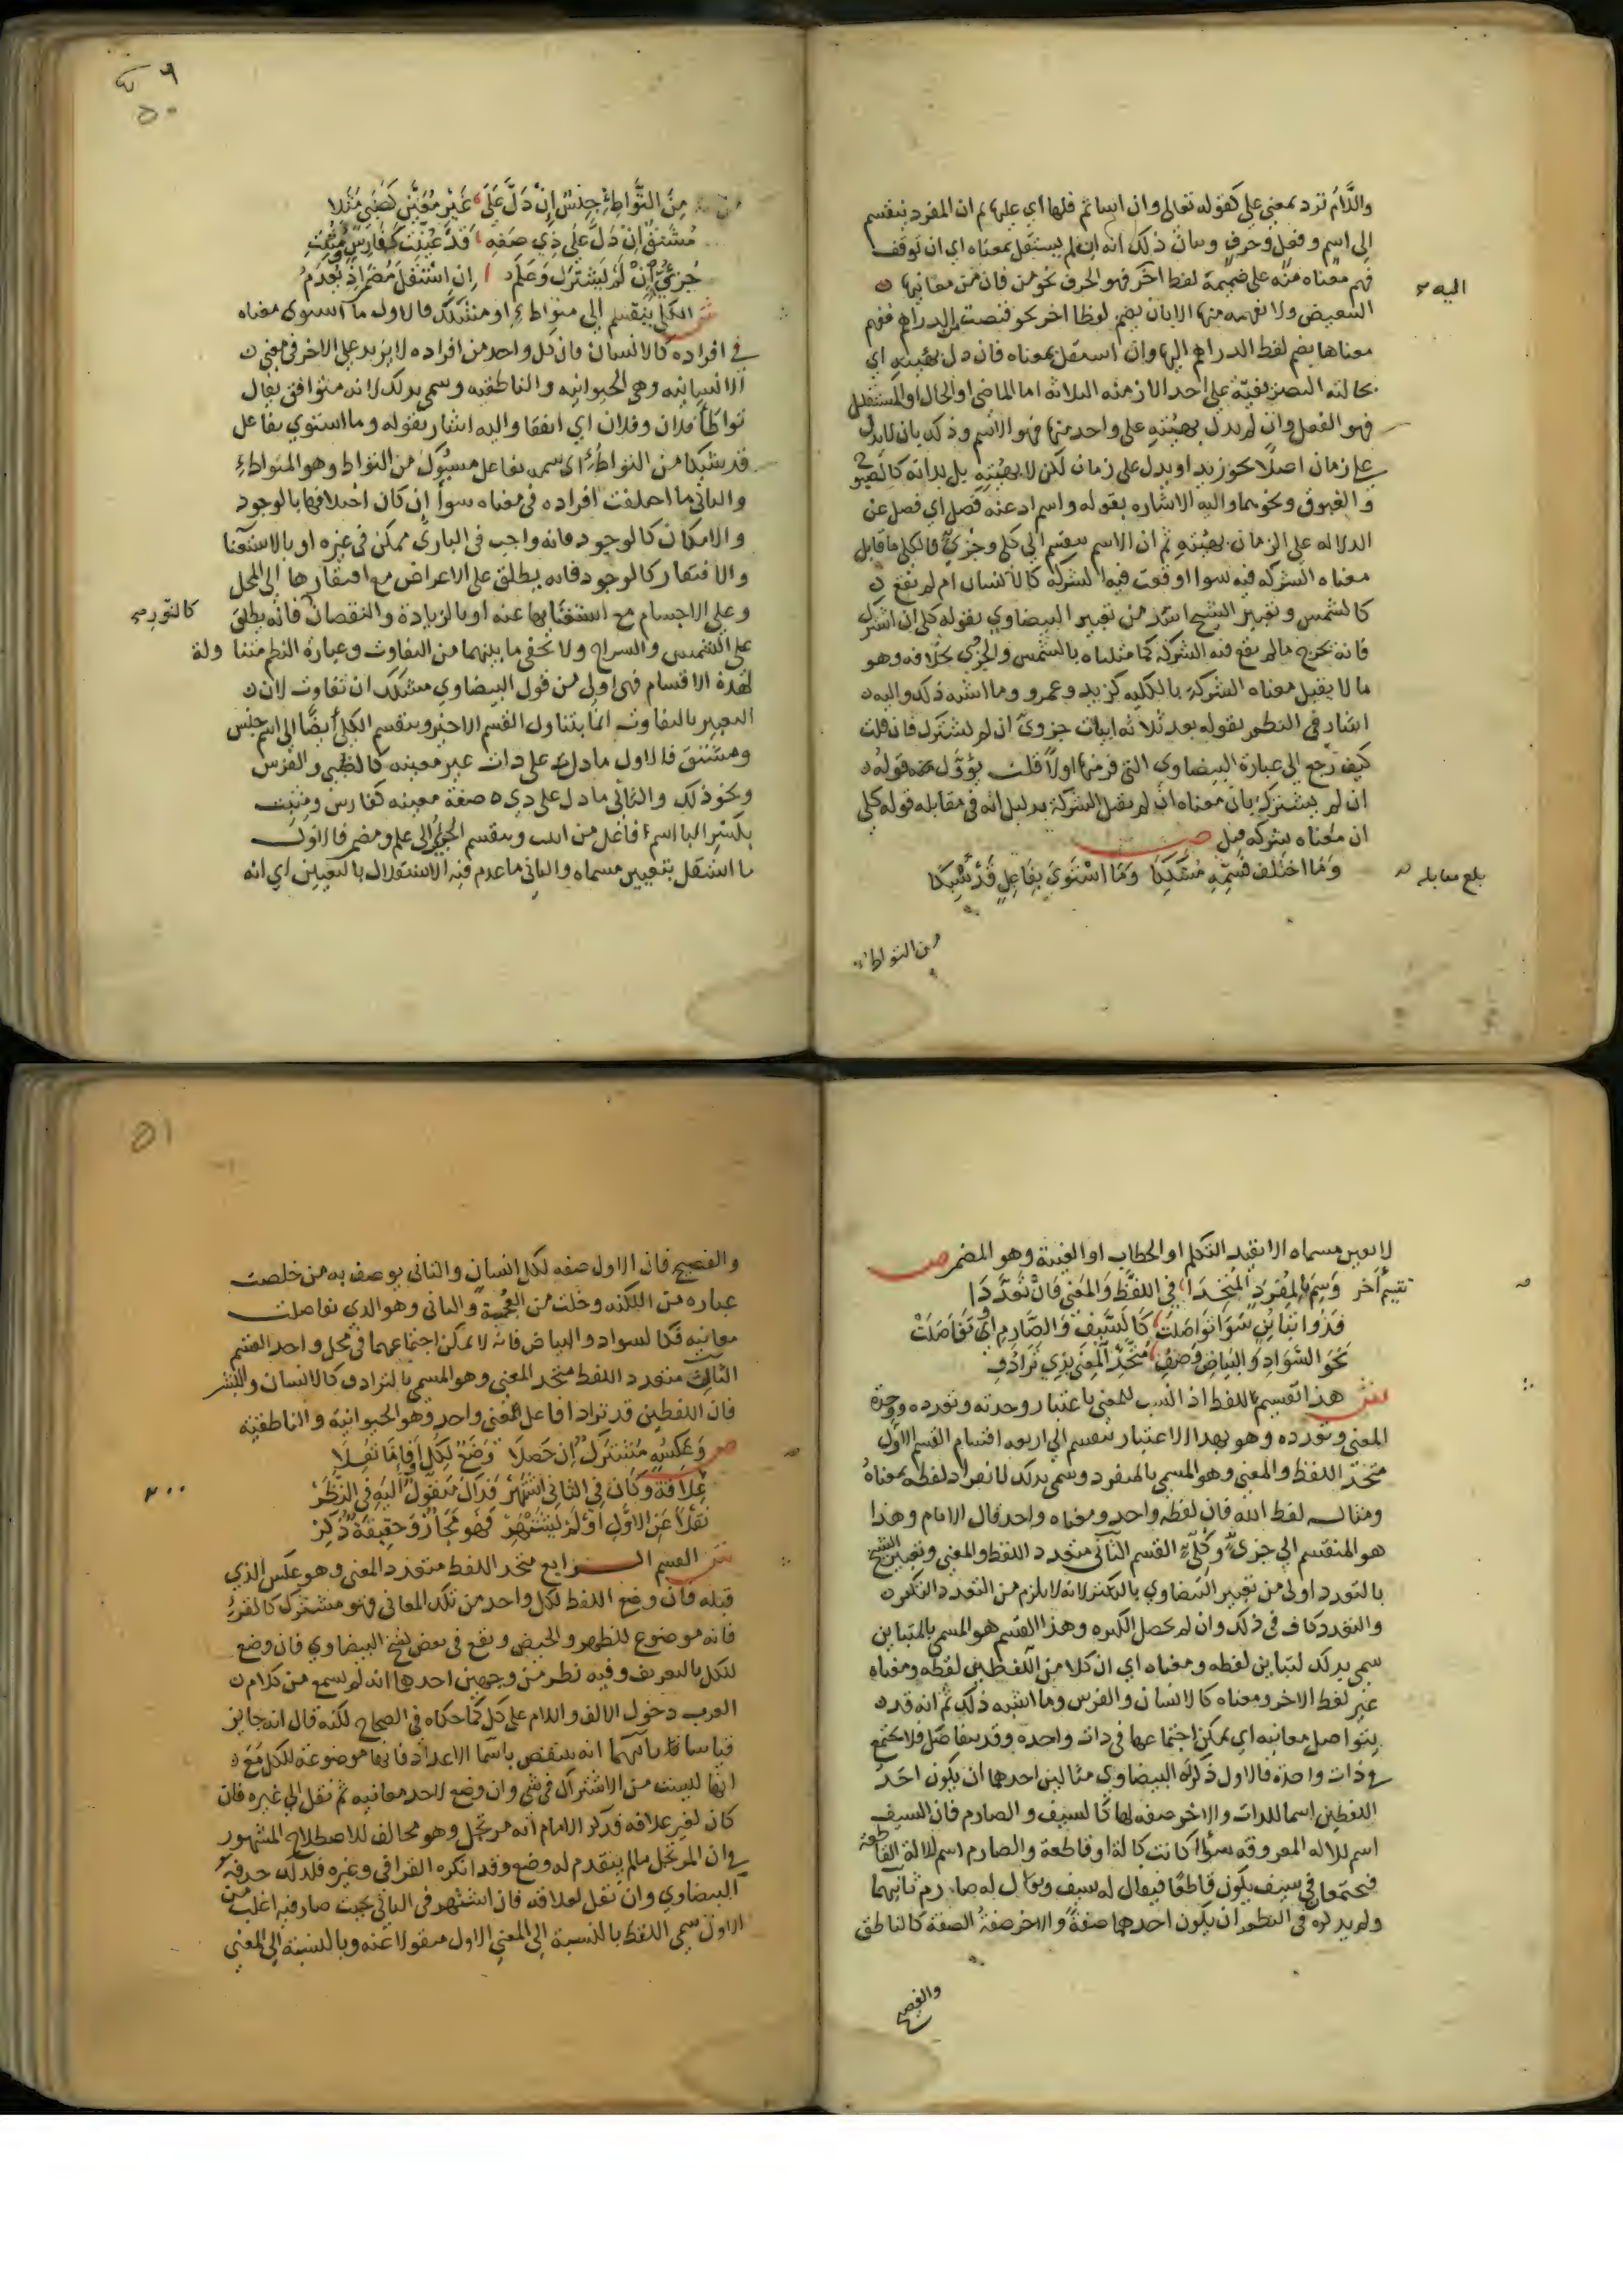 واللام ترد بمعنى على كقوله تعالى وان اساتم فلها اي عليها ثم ان المفرد ينقسم
الى اسم وفعل وحرف وبيان ذلك انه ان لم يستقل بمعناه اي ان توقف
فهم معناه منه على ضميمة لفظ اخر فهو الحرف نحو من فان من معانيها
اليه
التبعيض ولا نفهمه منها الا بان يضم لفظا اخر نحو قبضت من الدراهم ففهم
معناها بضم لفظ الدراهم اليها وان استقل بمعناه فان دل بهيئته اي
بحالته التصريفية على احد الازمنه الثلاثه اما الماضي او الحال او المستقبل
فهو الفعل وان لم يدل بهيئته على واحد منها فهو الاسم وذلك بان لا يدل
على زمان اصلا نحو زيد او يدل على زمان لكن لا بهيئته بل بذاته كالصبوح
والغبوق ونحوهما واليه الاشاره بقوله واسم اد عنه فصل اي فصل عن
الدلاله على الزمان بهيئته ثم ان الاسم ينقسم الى كلي وجزئي فالكلي ما قابل
معناه الشركه فيه سوا اوقعت فيه الشركه كالانسان ام لم تقع
كالشمس وتعبير الشيخ اسد من تعبير البيضاوي بقوله كلي ان اشترك
فانه يخرج ما لم تقع فيه الشركه كما مثلناه بالشمس والجزئي بخلافه وهو
ما لا يقبل معناه الشركة بالكليه كزيد وعمرو وما اشبه ذلك واليه
اشار في النظم بقوله بعد ثلاثه ابيات جزوي ان لم يشترك فان قلت
كيف رجع الى عبارة البيضاوي التي فر منها اولا قلت يؤول قوله
ان لم يشترك بان معناه ان لم يقبل الشركة بدليل انه في مقابله قوله كلي
ان معناه شركه قبل ص
وَمَا اختَلَف فَسَمِّهِ مُشَكِّكَا وَمَا اسْتَوَى بِفَاعِلٍ قَدْ شُبِّكَا
بلغ مقابله
من التواطؤ
٥٠
مِنَ التَّواطِئِ جِنْسٌ إنْ دَلَّ عَلَى غَيْرِ مُعَيَّنٍ كَظَبْيٍ مَثَلا
مُشْتَقٌّ انْ دَلَّ عَلَى ذِي صَفَةٍ قَدْ عُيِّنَتْ كَفَارِسٍ
جُزئِيٌّ إنْ لَمْ يَشْتَرِكْ وَعَلَمٌ إنِ اسْتَقَلَ مُضْمَرٌ اذْ يُعْدَمُ
ش الكلي ينقسم الى متواطئ او متشكك فالاول ما استوى معناه
في افراده كالانسان فان كل واحد من افراده لا يزيد على الاخر في معنى
الانسانيه وهى الحيوانيه والناطقيه وسمي بذلك لانه متوافق يقال
تواطأ فلان وفلان اي اتفقا واليه اشار بقوله وما استوي بفاعل
قد شبكا من التواطؤ اي سمه بفاعل مسبوك من التواطؤ وهو المتواطئ
والثاني ما اختلفت افراده في معناه سوا ان كان اختلافها بالوجود
والامكان كالوجود فانه واجب في الباري ممكن في غيره او بالاستغنا
والافتقار كالوجود فانه يطلق على الاعراض مع افتقارها الى المحل
وعلى الاجسام مع استغنايها عنه او بالزيادة والنقصان فانه يطلق
كالنور
على الشمس والسراج ولا تخفى ما بينهما من التفاوت وعبارة النظم متناولة
لهذه الاقسام فهى اولى من قول البيضاوي مشكك ان تفاوت لان
التعبير بالتفاوت انما يتناول القسم الاخير وينقسم الكلي أيضًا الى اسم جنس
ومشتق فالاول ما دل على ذات غير معينه كالظبي والفرس
ونحو ذلك والثاني ما دل على ذي صفة معينه كفارس ومثبت
بكسر البا اسم فاعل من اثبت وينقسم الجزئي الى علم ومضمر فالاول
ما استقل بتعيين مسماه والثاني ما عدم فيه الاستقلال بالتعيين اي انه
لا يعين مسماه الا بقيد التكلم او الخطاب او الغيبة وهو المضمر ص
تقسيم آخر وَسِمْ بِالمُفْرَدِ المُتَّحِدَا في اللفْظِ وَالمَعْنى فَانْ تَعَدَّدَا
فَذُو تَبَايُنٍ سَوَا تَوَاصَلَتْ كَالسَّيفِ وَالصَّارِمِ أوْ تَفَاصَلَتْ
نَحْوَ السَّوَادِ وَالبَيَاضِ وَصِفِ مُتَّحِدَ المَعْنَى بِذِي تَرَادُفِ
ش هذا تقسيم للفظ اذا نسب للمعنى باعتبار وحدته وتعدده ووحدة
المعنى وتعدده وهو بهذا الاعتبار ينقسم الى اربعه اقسام القسم الاول
متحد اللفظ والمعنى وهو المسمى بالمنفرد وسمى بذلك لانفراد لفظه بمعناه
ومثاله لفظ الله فان لفظه واحد ومعناه واحد قال الامام وهذا
هو المنقسم الي جزئي وكلي القسم الثاني متعدد اللفظ والمعنى وتعبير الشيخ
بالتعدد اولى من تعبير البيضاوي بالتكثر لانه لا يلزم من التعدد التكثر
والتعدد كاف في ذلك وان لم يحصل الكثره وهذا القسم هو المسمى بالمتباين
سمي بذلك لتباين لفظه ومعناه اي ان كلا من اللفظين لفظه ومعناه
غير لفظ الاخر ومعناه كالانسان والفرس وما اشبه ذلك ثم انه قد
يتواصل معانيه اي يمكن اجتماعها في ذات واحده وقد يتفاصل فلا يجتمع
في ذات واحدة فالاول ذكر له البيضاوي مثالين احدهما ان يكون احد
اللفظين اسما للذات والاخر صفه لها كالسيف والصارم فان السيف
اسم للاله المعروفه سوا كانت كالة او قاطعة والصارم اسم للالة القاطعة
فيجتمعان في سيف يكون قاطعا فيقال له سيف ويقال له صارم ثانيهما
ولم يذكره في النظم ان يكون احدهما صفة والاخر صفة الصفة كالناطق
والفصيح
٥١
والفصيح فان الاول صفه لكل انسان والثاني يوصف به من خلصت
عباره من اللكنه وخلت من العجمة والثاني وهو الذي تفاصلت
معانيه فكالسواد والبياض فانه لا يمكن اجتماعهما في محل واحد القسم
الثالث متعدد اللفظ متحد المعنى وهو المسمي بالترادف كالانسان والبشر
فان اللفظين قد ترادفا على معنى واحد وهو الحيوانية والناطقيه
ص وَعَكْسُهِ مُشْتَرَكٌ إن حَصَلَا وَضْعٌ لِكُلٍّ أوْ فَإمَّا نُقِلَا
عِلَاقَةٌ وَكَانَ فِي الثَّانِي اشْتَهَرْ فَذَاكَ مَنْقُولٌ اليَهِ في النَّظَرْ
نَقْلًا عَنِ الاوَّلِ أوْ لَمْ يَشْتَهِرْ فَهْوَ مَجَازٌ وَحَقِيقَةٌ ذُكِرْ
ش القسم الرابع متحد اللفظ متعدد المعنى وهو عكس الذي
قبله فان وضع اللفظ لكل واحد من تلك المعاني فهو مشترك كالقرء
فانه موضوع للطهر والحيض ويقع في بعض نسخ البيضاوي فان وضع
للكل بالتعريف وفيه نظر من وجهين احدهما انه لم يسمع من كلام
العرب دخول الالف واللام على كل كما حكاه في الصحاح لكنه قال انه جايز
قياسا ثانيهما انه ينتقض باسما الاعداد فانها موضوعة للكل مع
انها ليست من الاشتراك في شي وان وضع لاحد معانيه ثم نقل الى غيره فان
كان لغير علاقه فذكر الامام انه مرتجل وهو مخالف للاصطلاح المشهور
في ان المرتجل ما لم يتقدم له وضع وقد انكره القرافي وغيره فلذلك حذفه
البيضاوي وان نقل لعلاقه فان اشتهر في الثاني بحيث صار فيه اغلب من
الاول سمي اللفظ بالنسبة الى المعنى الاول منقولا عنه وبالنسبة الى المعنى